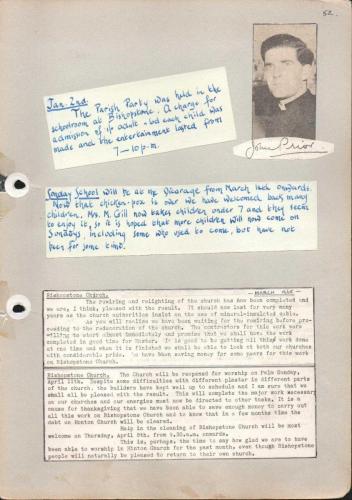 52.
Jan. 2nd.
The Parish Party was held in the
schoolroom at Bishopstone. A charge for
admission of 1/- adult 6d each child was
made and the entertainment lasted from
7 - 10 p.m.
John Prior.
Sunday School will be at the Vicarage from March 1st onwards.
Now that chicken-pox is over we have welcomed back many
children. Mrs. M. Gill now takes children under 7 and they seem
to enjoy it, so it is hoped that more children will now come on
Sundays, including some who used to come, but have not
been for some time.
Bishopstone Church. MARCH
The rewiring and relighting of the church has now been completed and
we are, I think, pleased with the result. It should now last for very many
years as the church authorities insist on the use of mineral-insulated cable.
As you will realise we have been waiting for the rewiring before pro-
ceeding to the redecoration of the church. The contractors for this work were
willing to start almost immediately and promise that we shall have the work
completed in good time for Easter. It is good to be getting all this work done
at one time and when it is finished we shall be able to look at both our churches
with considerable pride. We have been saving money for some years for this work
on Bishopstone Church.
Bishopstone Church. The Church will be reopened for worship on Palm Sunday,
April 11th. Despite some difficulties with different plaster in different parts
of the church, the builders have kept well up to schedule and I am sure that we
shall all be pleased with the result. This will complete the major work necessary
on our churches and our energies must now be directed to other tasks. It is a
cause for thanksgiving that we have been able to save enough money to carry out
all this work on Bishopstone Church and to know that in a few months time the
debt on Hinton Church will be cleared.
Help in the cleaning of Bishopstone Church will be most
welcome on Thursday, April 8th. from 9.30.a.m. onwards.
This is, perhaps, the time to say how glad we are to have
been able to worship in Hinton Church for the past month, even though Bishopstone
people will naturally be pleased to return to their own church.